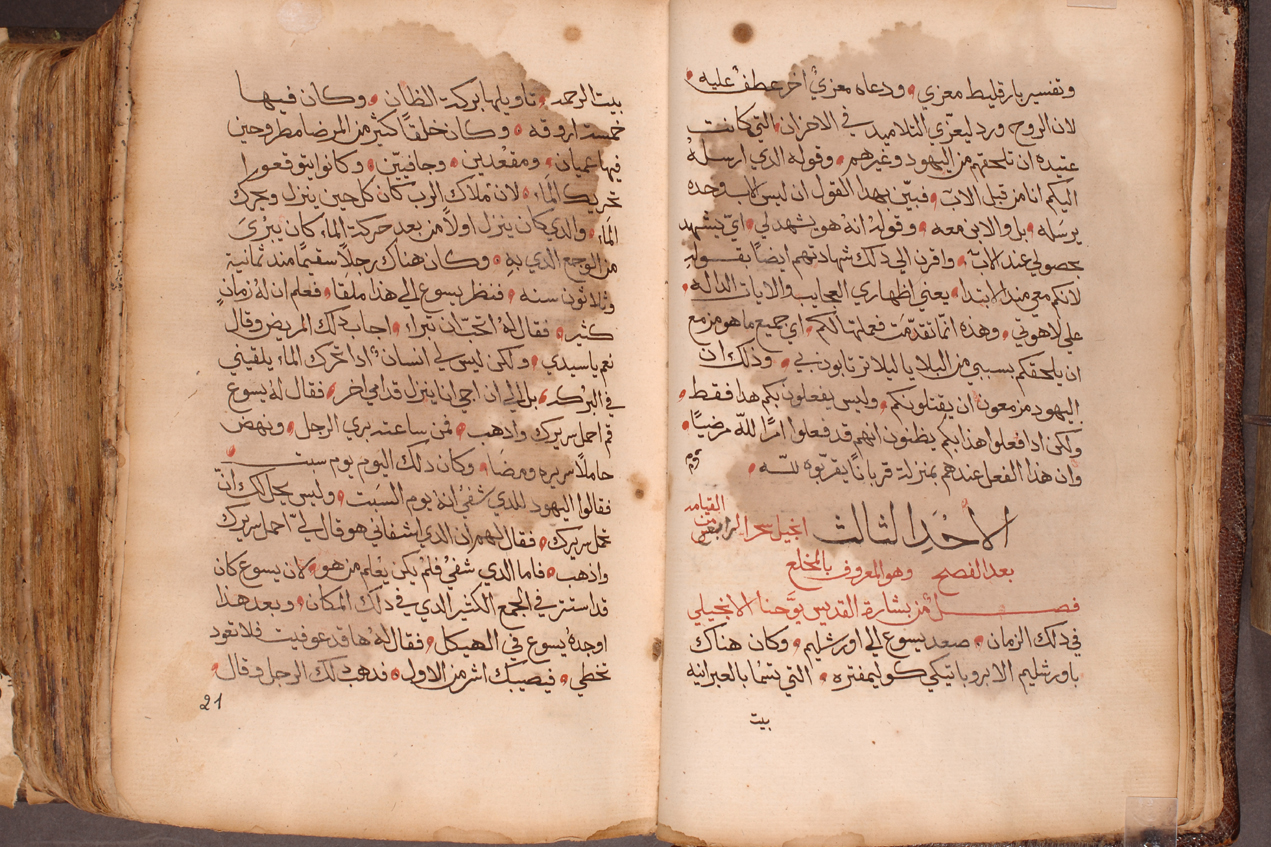 وتفسير بارقليط معزي، ودعاه معزيً اخر عطف عليه،
لان الروح ورد ليعزّي التلاميد في الاحزان التي كانت
عتيده ان تلحقهم من اليهود وغيرهم، وقوله الدي ارسله
اليكم انا من قبل الاب، فبيّن بهدا القول ان ليس الاب وحده
يرسله، بل والابن معه، وقوله انه هو يشهد لي، اي يشهد
بحصولي عند الاب، واقرن الي دلك شهادتهم ايضاً بقوله
لانكم معي مند الابتدا، يعني اظهاري العجايب والايات الداله،
علي لاهوتي، وهده انما تقدّمت فعلمتها لكم، اي جميع ما هو مزمع
ان يلحقكم بسببي من البلايا ليلا ترتابون بي، ودلك ان
اليهود مزمعون ان يقتلونكم، وليس يفعلون بكم هدا فقط،
ولكن ادا فعلوا هدا بكم يظنون انهم قد فعلوا امرًا للّه مرضيًا،
وان هدا الفعل عندهم بمنزلة قربانًا يقربوه للّه،
الاَحَدِ الثالث انجيل سحر الرابع من القيامه
بعد الفصح وهو المعروف بالمخلع
فصل من بشارة القديس يوحنا الانجيلي
في دلك الزمان، صعد يسوع الي اورشليم، وكان هناك
باورشليم الابروباتيكي كوليمفتره، التي تسما بالعبرانيه
بيت
بيت الرحمه، تاويلها بركت الظان، وكان فيها
خمست اروقه، وكان خلقاً كثير من المرضا مطروحين
فيها عميان، ومقعدين، وجافيّن، وكانوا يتوقعوا
تحريك الماء، لان ملاك الرب كان كل حين ينزل ويحرك
الماء، والدي كان ينزل اولاً من بعد حركة الماء كان يبرَى
من الوجع الدي به، وكان هناك رجلاً سقيمًا مند ثمانية
وثلاثون سنه، فنظر يسوع الي هدا ملقا، فعلم ان له زمانٍ
كثير، فقال له اتحبّ ان تبرا، اجاب دلك المريض وقال
نعم ياسيدي، ولكن ليس لي انسان ادا تحرك الماء يلقيني
في البركه، بل الي ان اجي انا ينزل قدامي اخر، فقال له يسوع
قم احمل سريرك وادهب، فمن ساعته بري الرجل، ونهض
حاملاً سريره ومضا، وكان دلك اليوم يوم سبت،
فقالوا اليهود للدي شفي انه يوم السبت، وليس يحل لك ان
تحمل سريرك، فقال لهم ان الدي اشفاني هو قال لي احمل سريرك
وادهب، فاما الدي شفي فلم يكن يعلم من هو، لان يسوع كان
قد استتر في الجمع الكثير الدي في دلك المكان، وبعد هدا
اوجده يسوع في الهيكل، فقال له ها قد عوفيت فلا تعود
تخطي، فيصيبك اشر من الاول، فدهب دلك الرجل وقال،
21